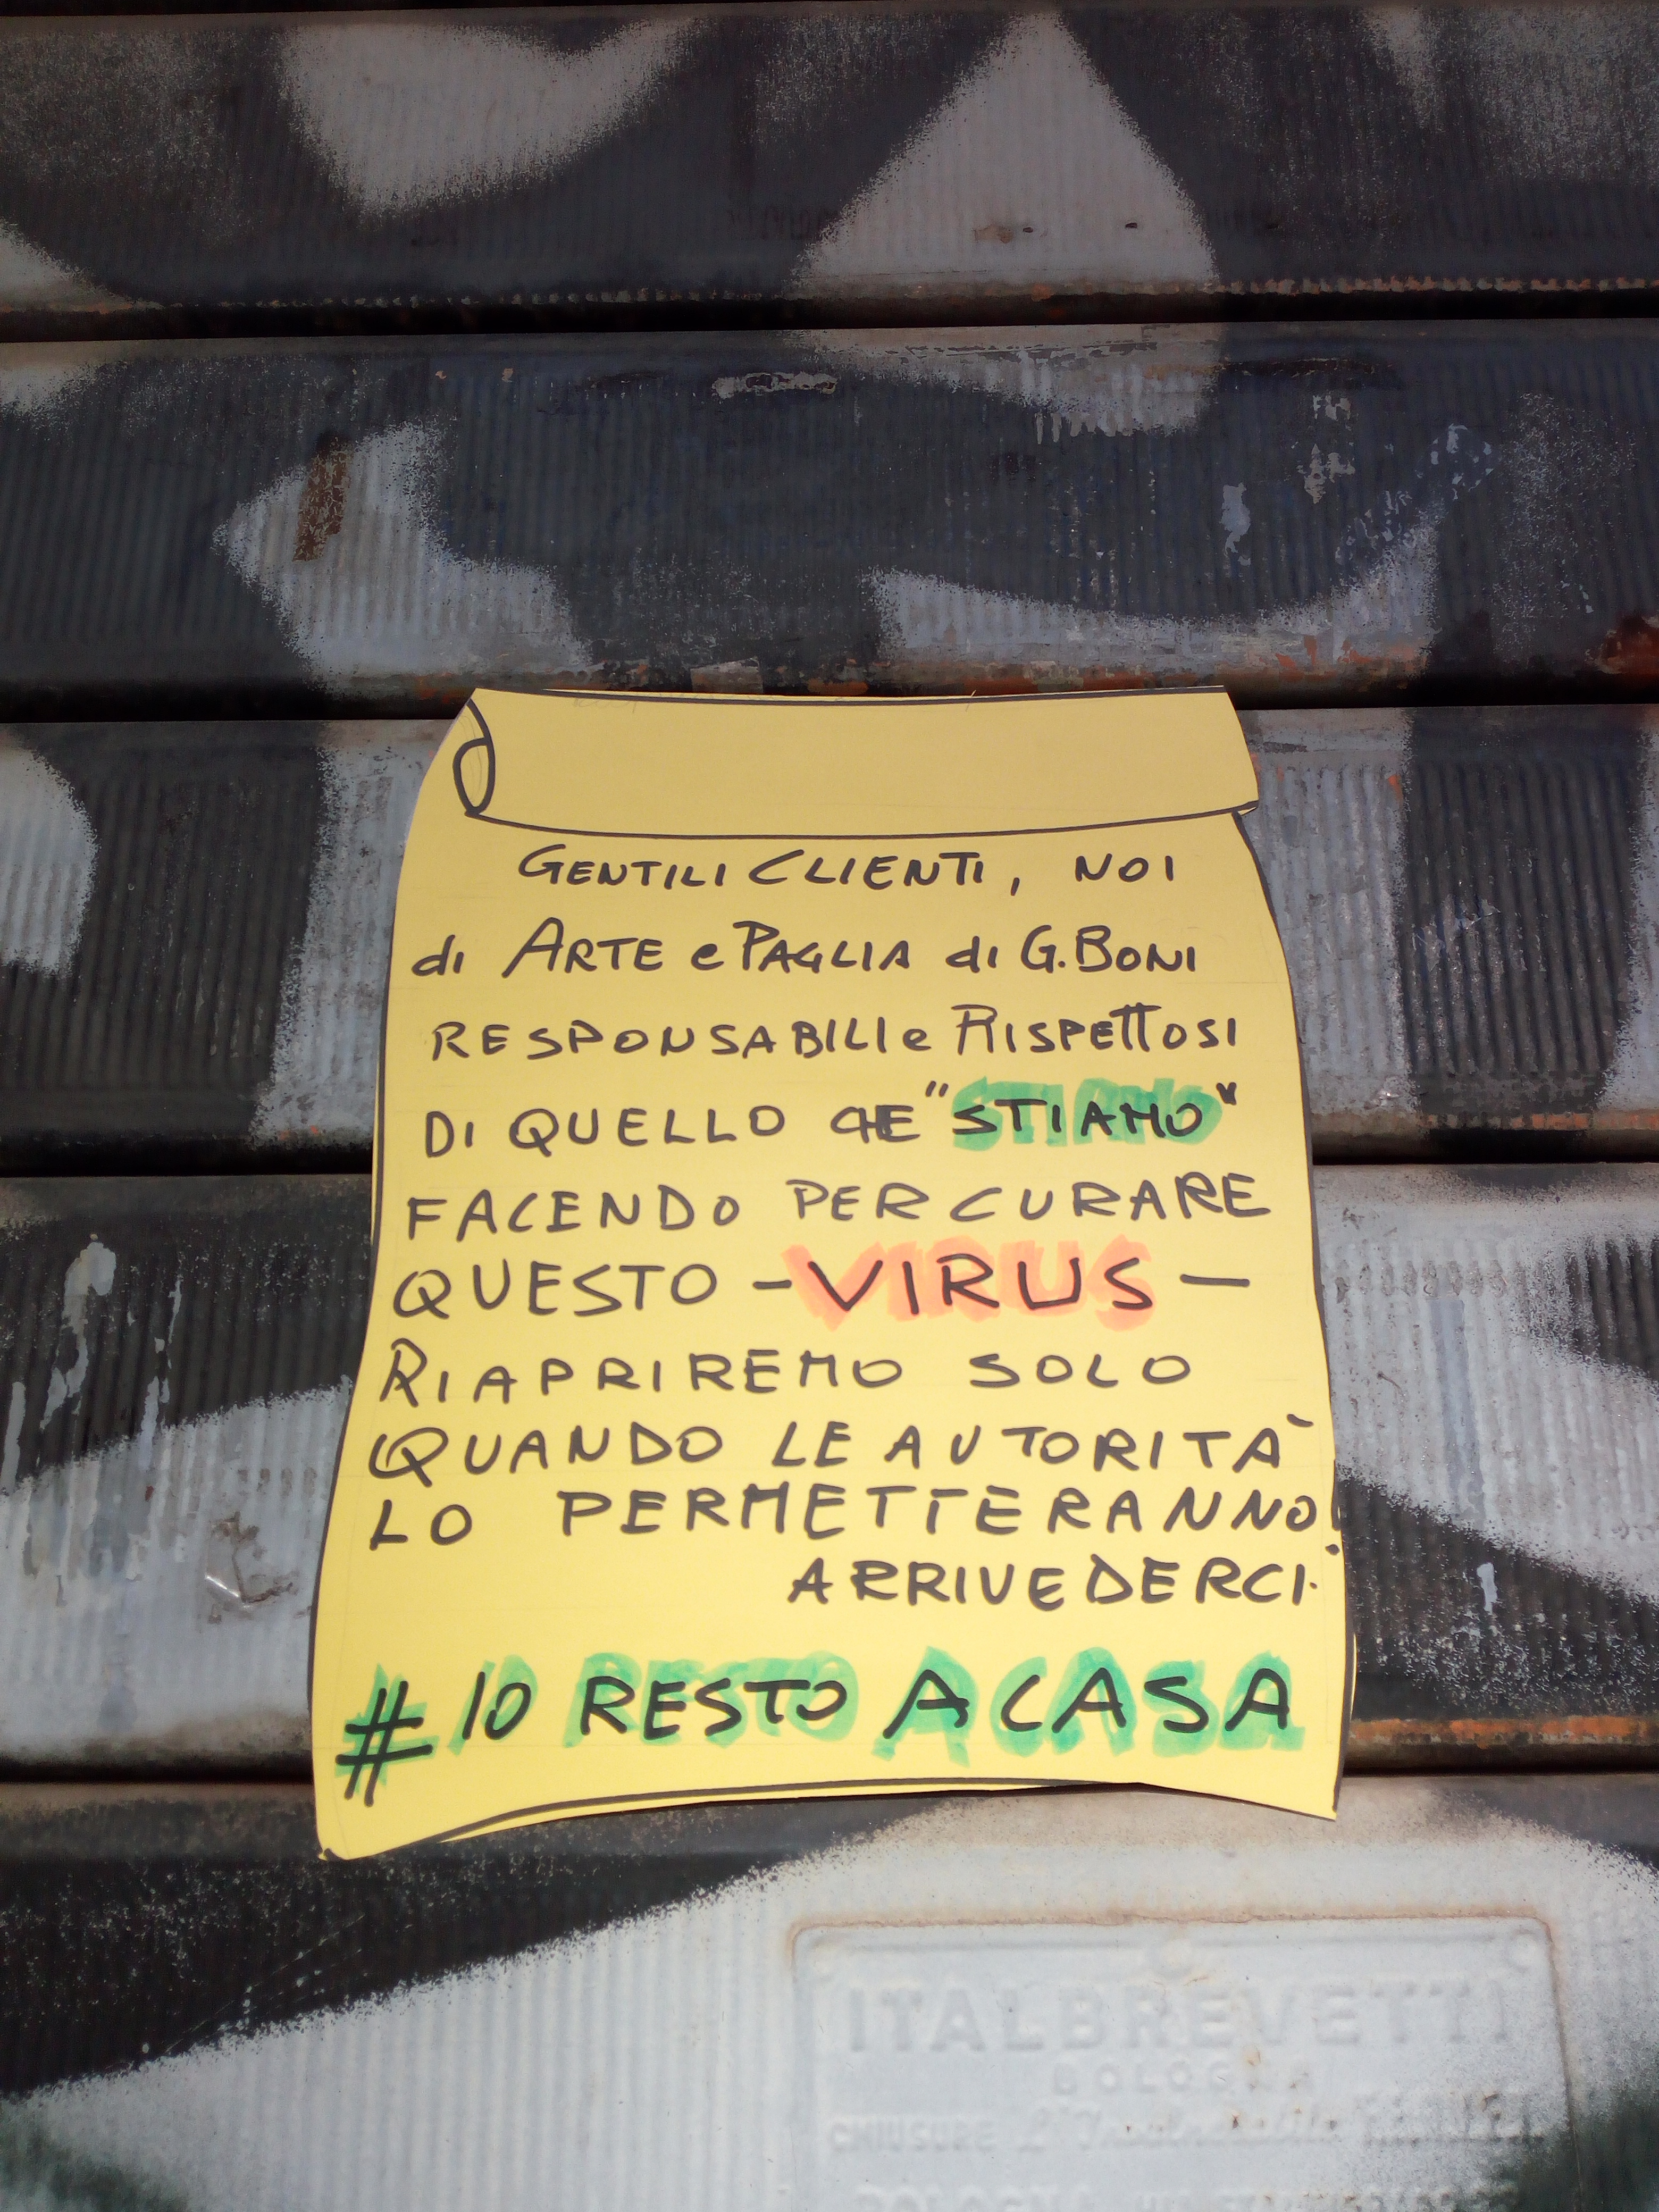 GENTILI CLIENTI, NOI
di ARTE e PAGLIA di G. BONI
RESPONSABILI e RISPETTOSI
DI QUELLO CHE "STIAMO"
FACENDO PER CURARE
QUESTO - VIRUS -
RIAPRIREMO SOLO
QUANDO LE AUTORITÀ
LO PERMETTERANNO!
ARRIVEDERCI.
# IO RESTO A CASA
ITALBREVETTI
BOLOGNA
CHIUSURE
BOLOGNA